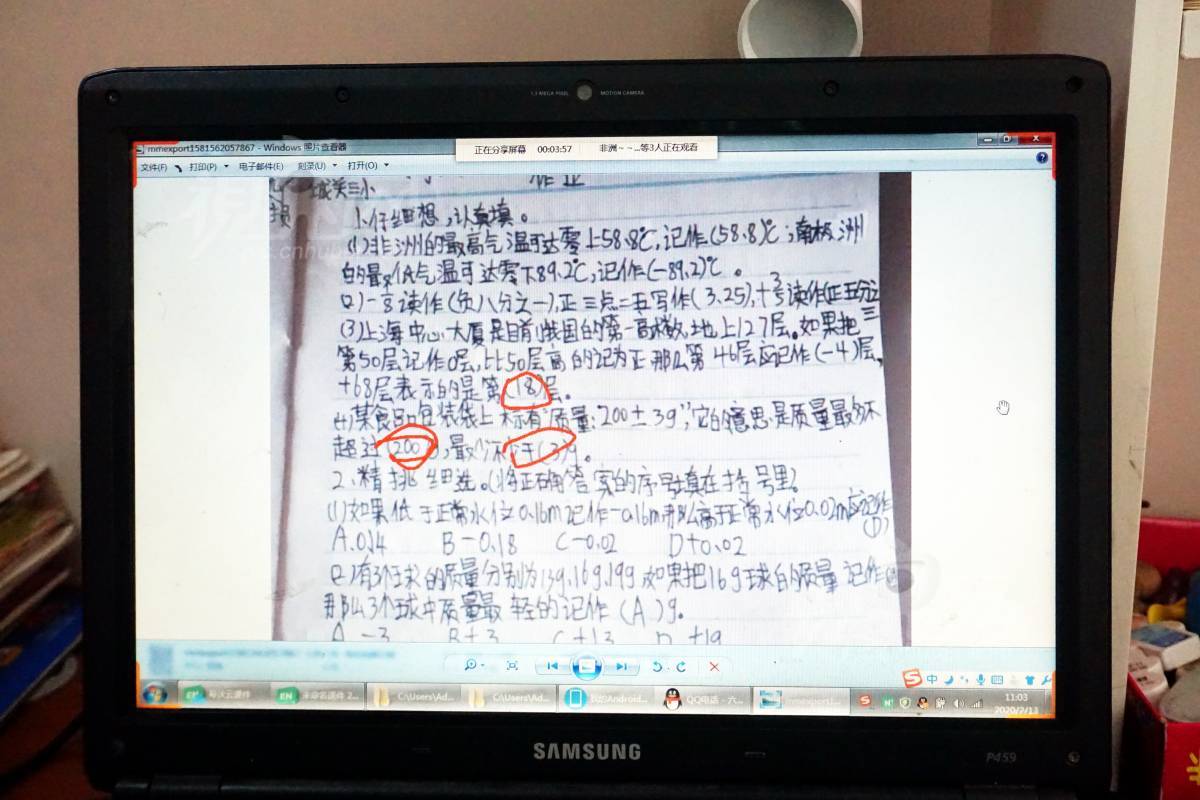 1.3 MEGA PIXEL MOTION CAMERA
mmexport1581562057867 - Windows 照片查看器
正在分享屏幕 00:03:57 非洲~~...等3人正在观看
文件(F) 打印(P) 电子邮件(E) 刻录(U) 打开(O)
作业
小仔细想,认真填。
(1)非洲的最高气温可达零上58.8℃,记作(58.8)℃;南极洲
的最低气温可达零下89.2℃,记作(-89.2)℃。
读作(负八分之一),正三点二五写作(3.25),读作(正五分之
三
(3)上海中心大厦是目前我国的第一高楼,地上127层。如果把
第50层记作0层,比50层高的记为正,那么第46层应记作(-4)层,
+68层表示的是第(18)层。
(4)某食品包装袋上标有"质量:200±3g",它的意思是质量最多不
超过(200)g,最少不少于(3)g。
2、精挑细选。(将正确答案的序号填在括号里)
(1)如果低于正常水位0.16m记作-0.16m,那么高于正常水位0.02m应记作
(D)
A.0.14 B-0.18 C-0.02 D+0.02
(2)有3个球的质量分别为13g、16g、19g,如果把16g球的质量记作
那么3个球中质量最轻的记作(A)g。
A -3 B+3 C+13 D +19
C:\Users\Ad... C:\Users\Ad... 我的Android... QQ电话 - 六... mmexport1...
未命名课件 2...
中
11:03
2020/2/13
SAMSUNG
P459